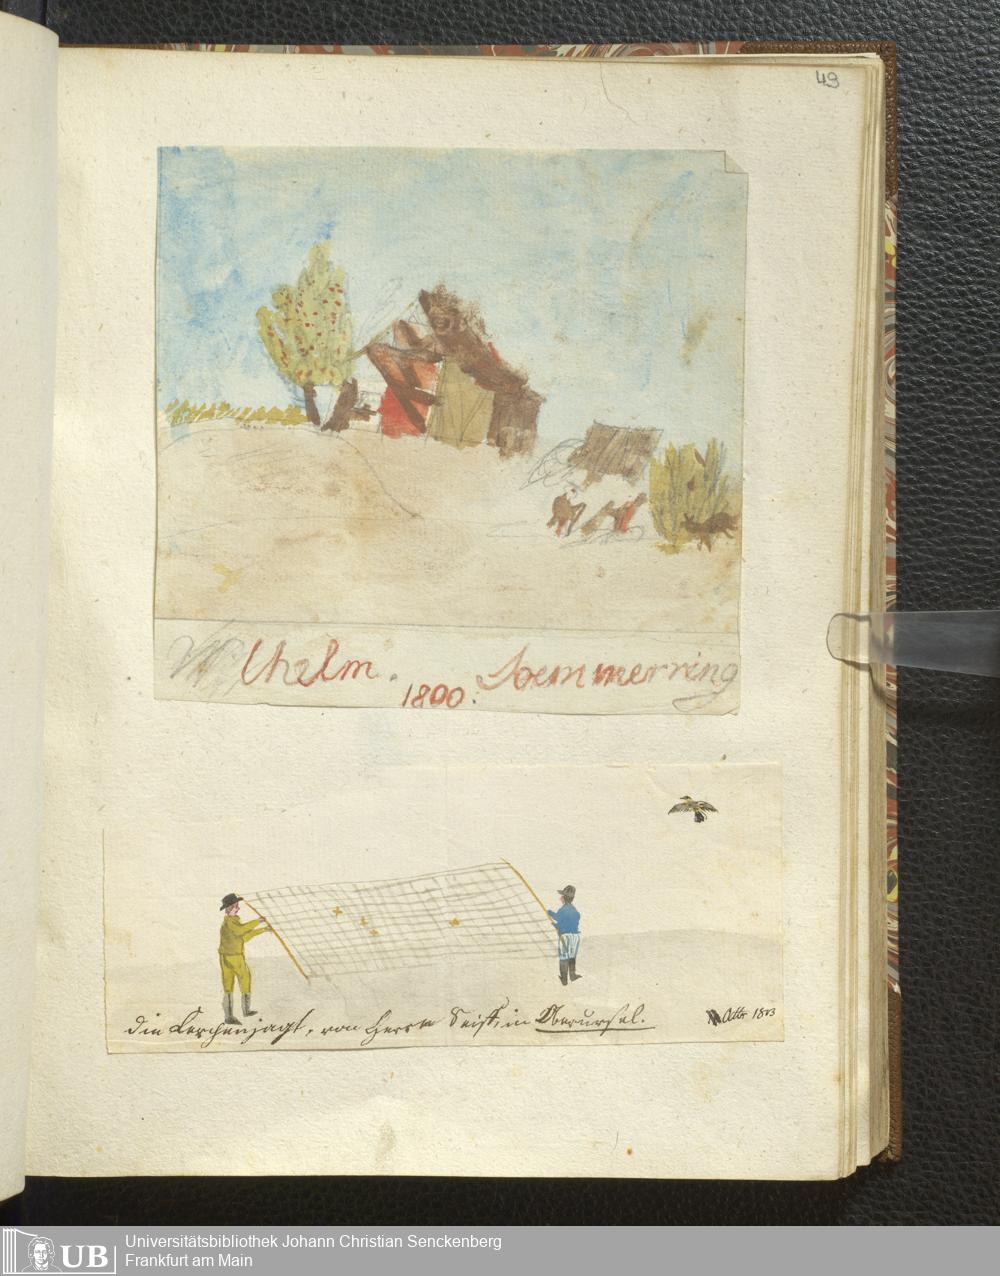 49
Wilhelm. Soemmerring
1800.
die Lerchenjagt, von Herrn in Oberursel.
Octbr 1813
UB
Universitätsbibliothek Johann Christian Senckenberg
Frankfurt am Main